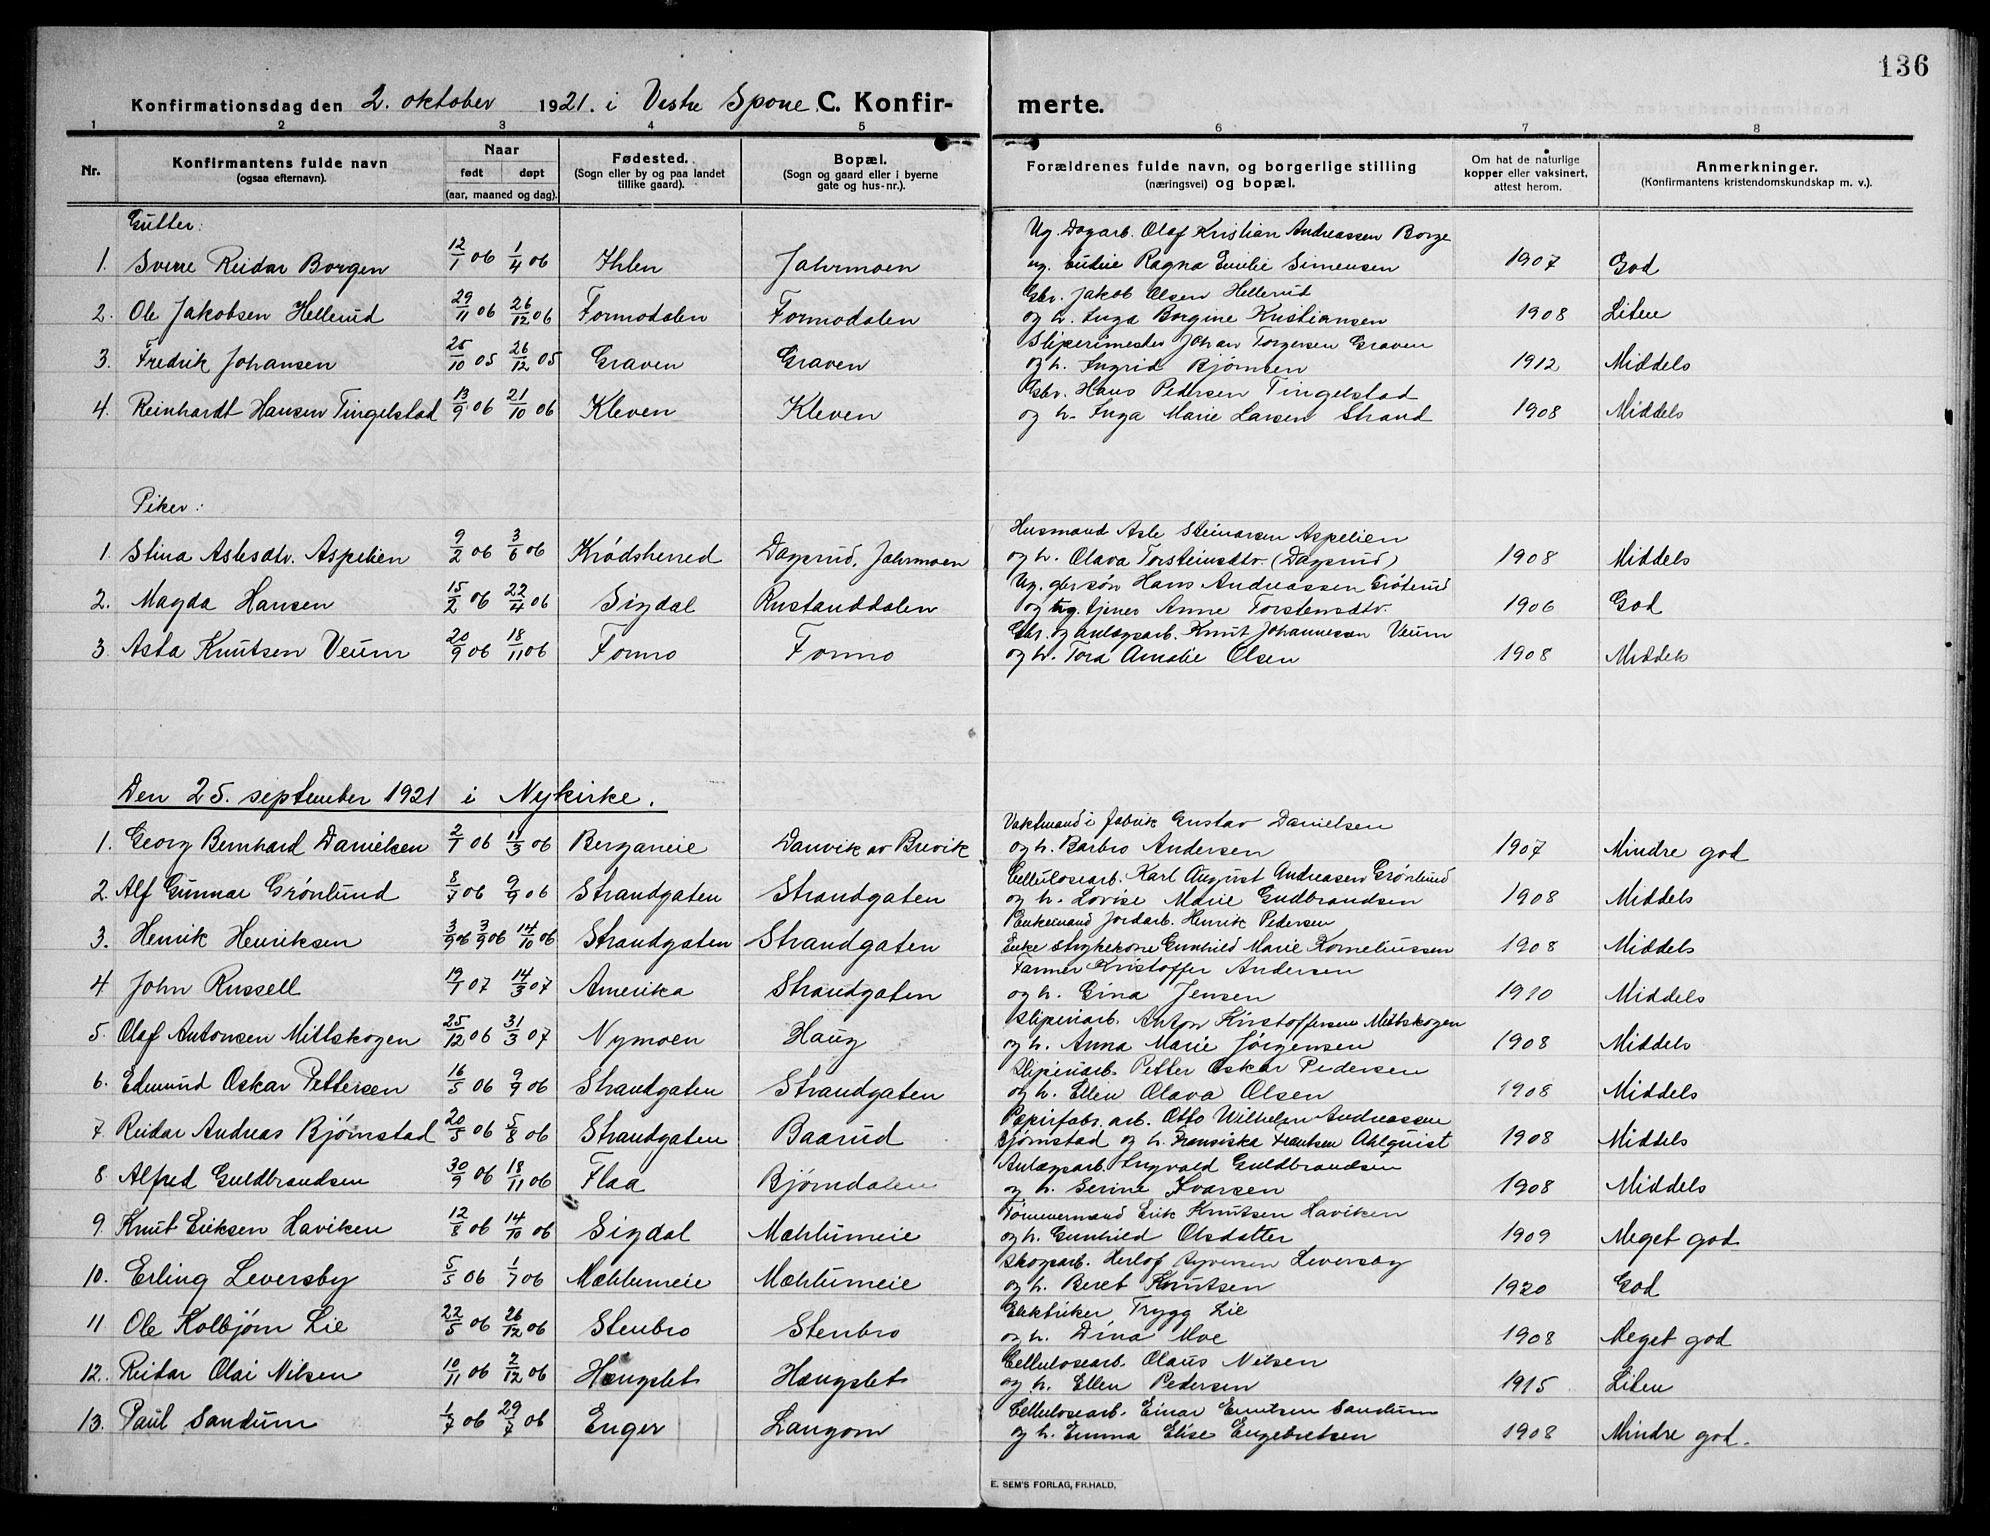 136
Konfirmationsdag den 2. oktober 1921. i Vestre Spone C. Konfirmerte.
1 2 3 4 5 6 7 8
Nr. Konfirmantens fulde navn (ogsaa efternavn). Naar født døpt (aar, maaned og dag). Fødested. (Sogn eller by og paa landet tillike gaard). Bopæl. (Sogn og gaard eller i byerne gate og hus-nr.). Forældrenes fulde navn, og borgerlige stilling (næringsvei) og bopæl. Om hat de naturlige kopper eller vaksinert, attest herom. Anmerkninger. (Konfirmantens kristendomskundskap m. v.).
Gutter:
Ug. Dagarb. Olaf Kristian Andreassen Borge
1. Sverre Reidar Borgen 12/1 06 1/4 06 Ihlen Jahrmoen ug. Ragna Emilie Simensen 1907 God
Gbr. Jakob Olsen Hellerud
2. Ole Jakobsen Hellerud 29/11 06 26/12 06 Formodalen Formodalen og h. Inga Borgine Kristiansen 1908 Liten
Sliperimester Johan Torgersen Graven
3. Fredrik Johansen 25/10 05 26/12 05 Graven Graven og h. Ingrid Bjørnsen 1912 Middels
Gbr. Hans Pedersen Tingelstad
4. Reinhardt Hansen Tingelstad 13/9 06 21/10 06 Kleven Kleven og h. Inga Marie Larsen Strand 1908 Middels
Piker:
Husmand Asle Steinarsen Aspelien
1. Stina Aslesdtr. Aspelien 9/2 06 3/6 06 Krødsherred Dagsrud, Jahrmoen og h. Olava Torsteinsdtr. (Dagsrud) 1908 Middels
Ug. gbrsøn Hans Andreassen Grøterud
2. Magda Hansen 15/2 06 22/4 06 Sigdal Rustanddalen og ug. tjener Anne Torstensdtr. 1906 God
Gbr. og anlægsarb. Knut Johannessen Veum
3. Asta Knutsen Veum 20/9 06 18/11 06 Formo Formo og h. Tora Amalie Olsen 1908 Middels
Den 25. september 1921 i Nykirke.
Vaktmand i fabrik Gustav Danielsen
1. Georg Bernhard Danielsen 2/1 06 11/3 06 Berganeie Danvik av Brevik og h. Barbro Andersen 1907 Mindre god
Cellulosearb. Karl August Andreasen Grønlund
2. Alf Gunnar Grønlund 8/7 06 9/9 06 Strandgaten Strandgaten og h. Lovise Marie Gudbrandsen 1908 Middels
Enkemand Jordarb. Henrik Pedersen
3. Henrik Henriksen 3/9 06 3/9 06 14/10 06 Strandgaten Strandgaten Enke strykekone Gunhild Marie Korneliussen 1908 Middels
Farmer Kristoffer Andersen
4 John Russell 19/1 07 14/3 07 Amerika Strandgaten og h. Gina Jensen 1910 Middels
Sliperiarb. Anton Kristoffersen Mittskogen
5. Olaf Antonsen Mittskogen 25/12 06 31/3 07 Nymoen Haug og h. Anna Marie Jørgensen 1908 Middels
Sliperiarb. Petter Oskar Pedersen
6. Edmund Oskar Pettersen 16/5 06 9/9 06 Strandgaten Strandgaten og h. Ellen Olava Olsen 1908 Middels
Papirfabr. arb. Otto Wilhelm Andreassen
7. Reidar Andreas Bjørnstad 20/5 06 5/8 06 Strandgaten Baarud Bjørnstad og h. Fransiska Frantsen Ahlquist 1908 Middels
Anlægsarb. Ingvald Guldbrandsen
8 Alfred Guldbrandsen 30/9 06 18/11 06 Flaa Bjørndalen og h. Serine Ivarsen 1908 Middels
Tømmermand Erik Knutsen Haviken
9. Knut Eriksen Haviken 12/8 06 14/10 06 Sigdal Mæhlumeie og h. Gunhild Olsdatter 1909 Meget god
Skogarb. Herlof Syversen Leversby
10. Erling Leversby 5/5 06 1/7 06 Mæhlumeie Mæhlumeie og h. Beret Knutsen 1920 God
Elektriker Trygg Lie
11 Ole Kolbjørn Lie 22/5 06 26/12 06 Stenbro Stenbro og h. Dina Moe 1908 Meget god
Cellulosearb. Olaus Nilsen
12. Reidar Olai Nilsen 10/11 06 2/12 06 Haugslet Haugslet og h. Ellen Pedersen 1915 Liten
Cellulosearb. Einar Knutsen Sandum
13. Paul Sandum 1/7 06 29/7 06 Enger Langom og h. Emma Elise Engebretsen 1908 Mindre god.
E. SEM'S FORLAG, FR.HALD.